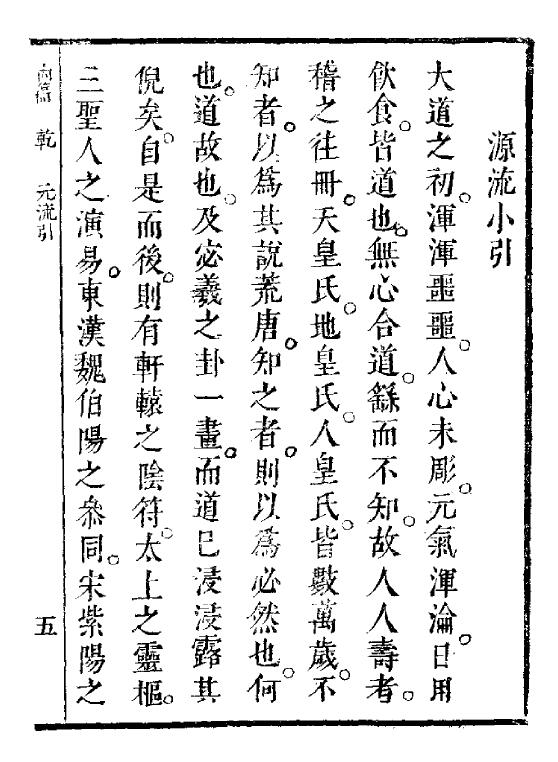 源流小引
大道之初。渾渾噩噩。人心未彫。元氣渾淪。日用
飲食。皆道也。無心合道。繇而不知。故人人壽者。
稽之往冊。天皇氏。地皇氏。人皇氏。皆數萬歲。不
知者。以爲其說荒唐。知之者。則以爲必然也。何
也。道故也。及宓羲之卦一畫。而道已浸浸露其
倪矣。自是而後。則有軒轅之陰符。太上之靈樞。
三聖人之演易。東漢魏伯陽之叅同。宋紫陽之
乾 元流引
五